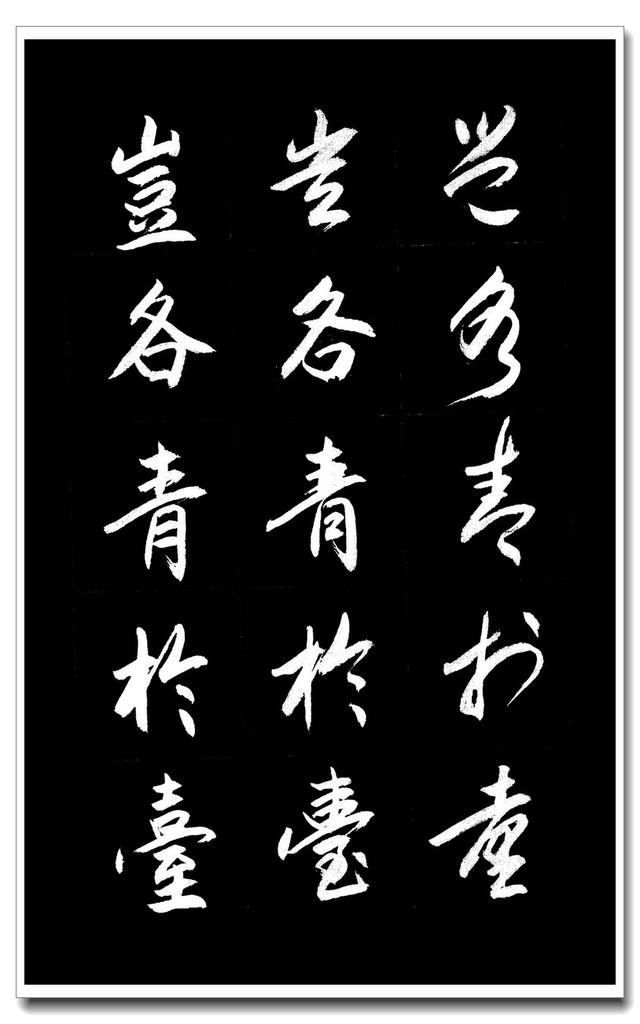 豈各青於臺
豈各青於臺
豈各青於臺